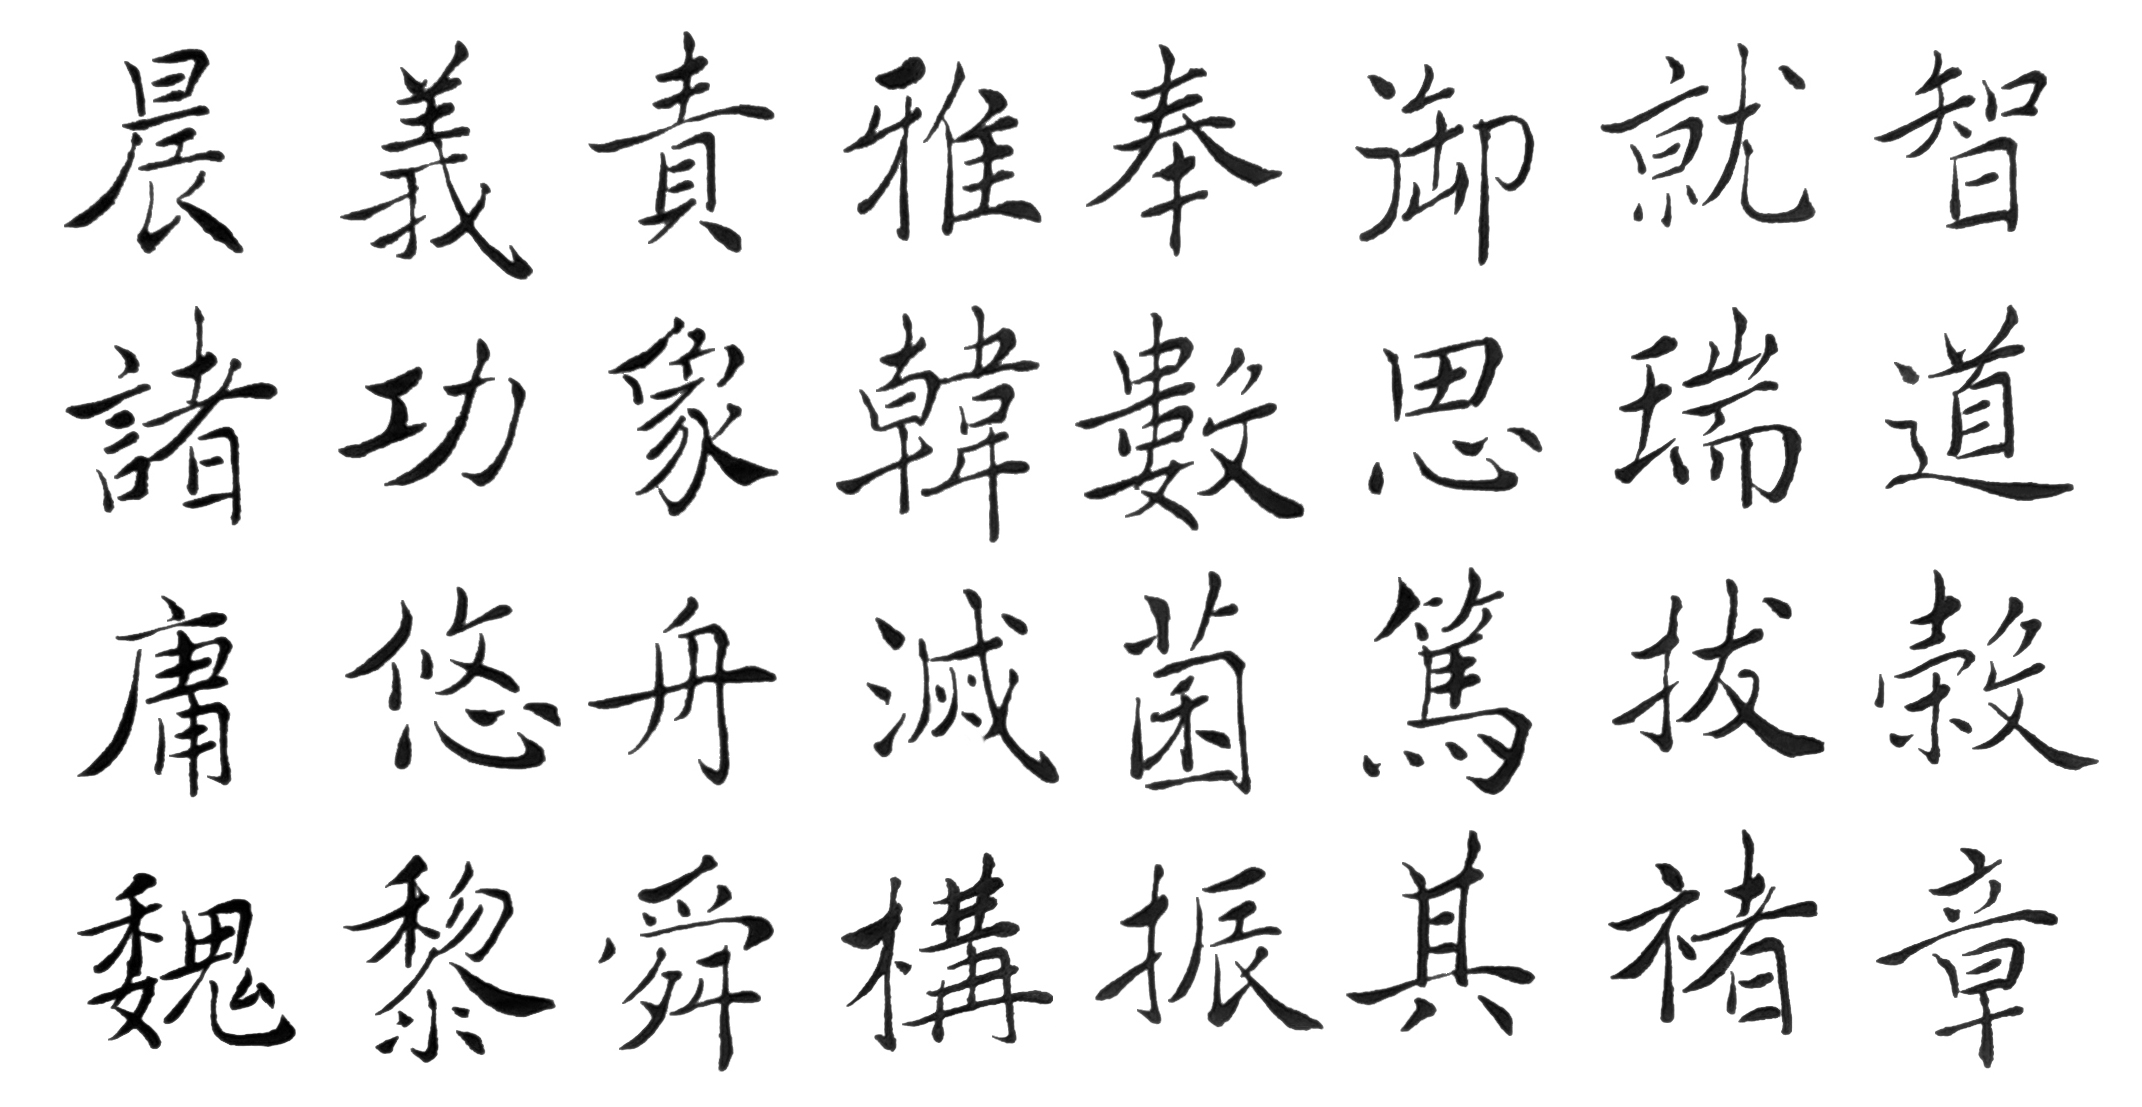 晨義責雅奉御就智
諸功象韓數思瑞道
庸悠舟滅菌篤拔穀
魏黎舜構振其褚章